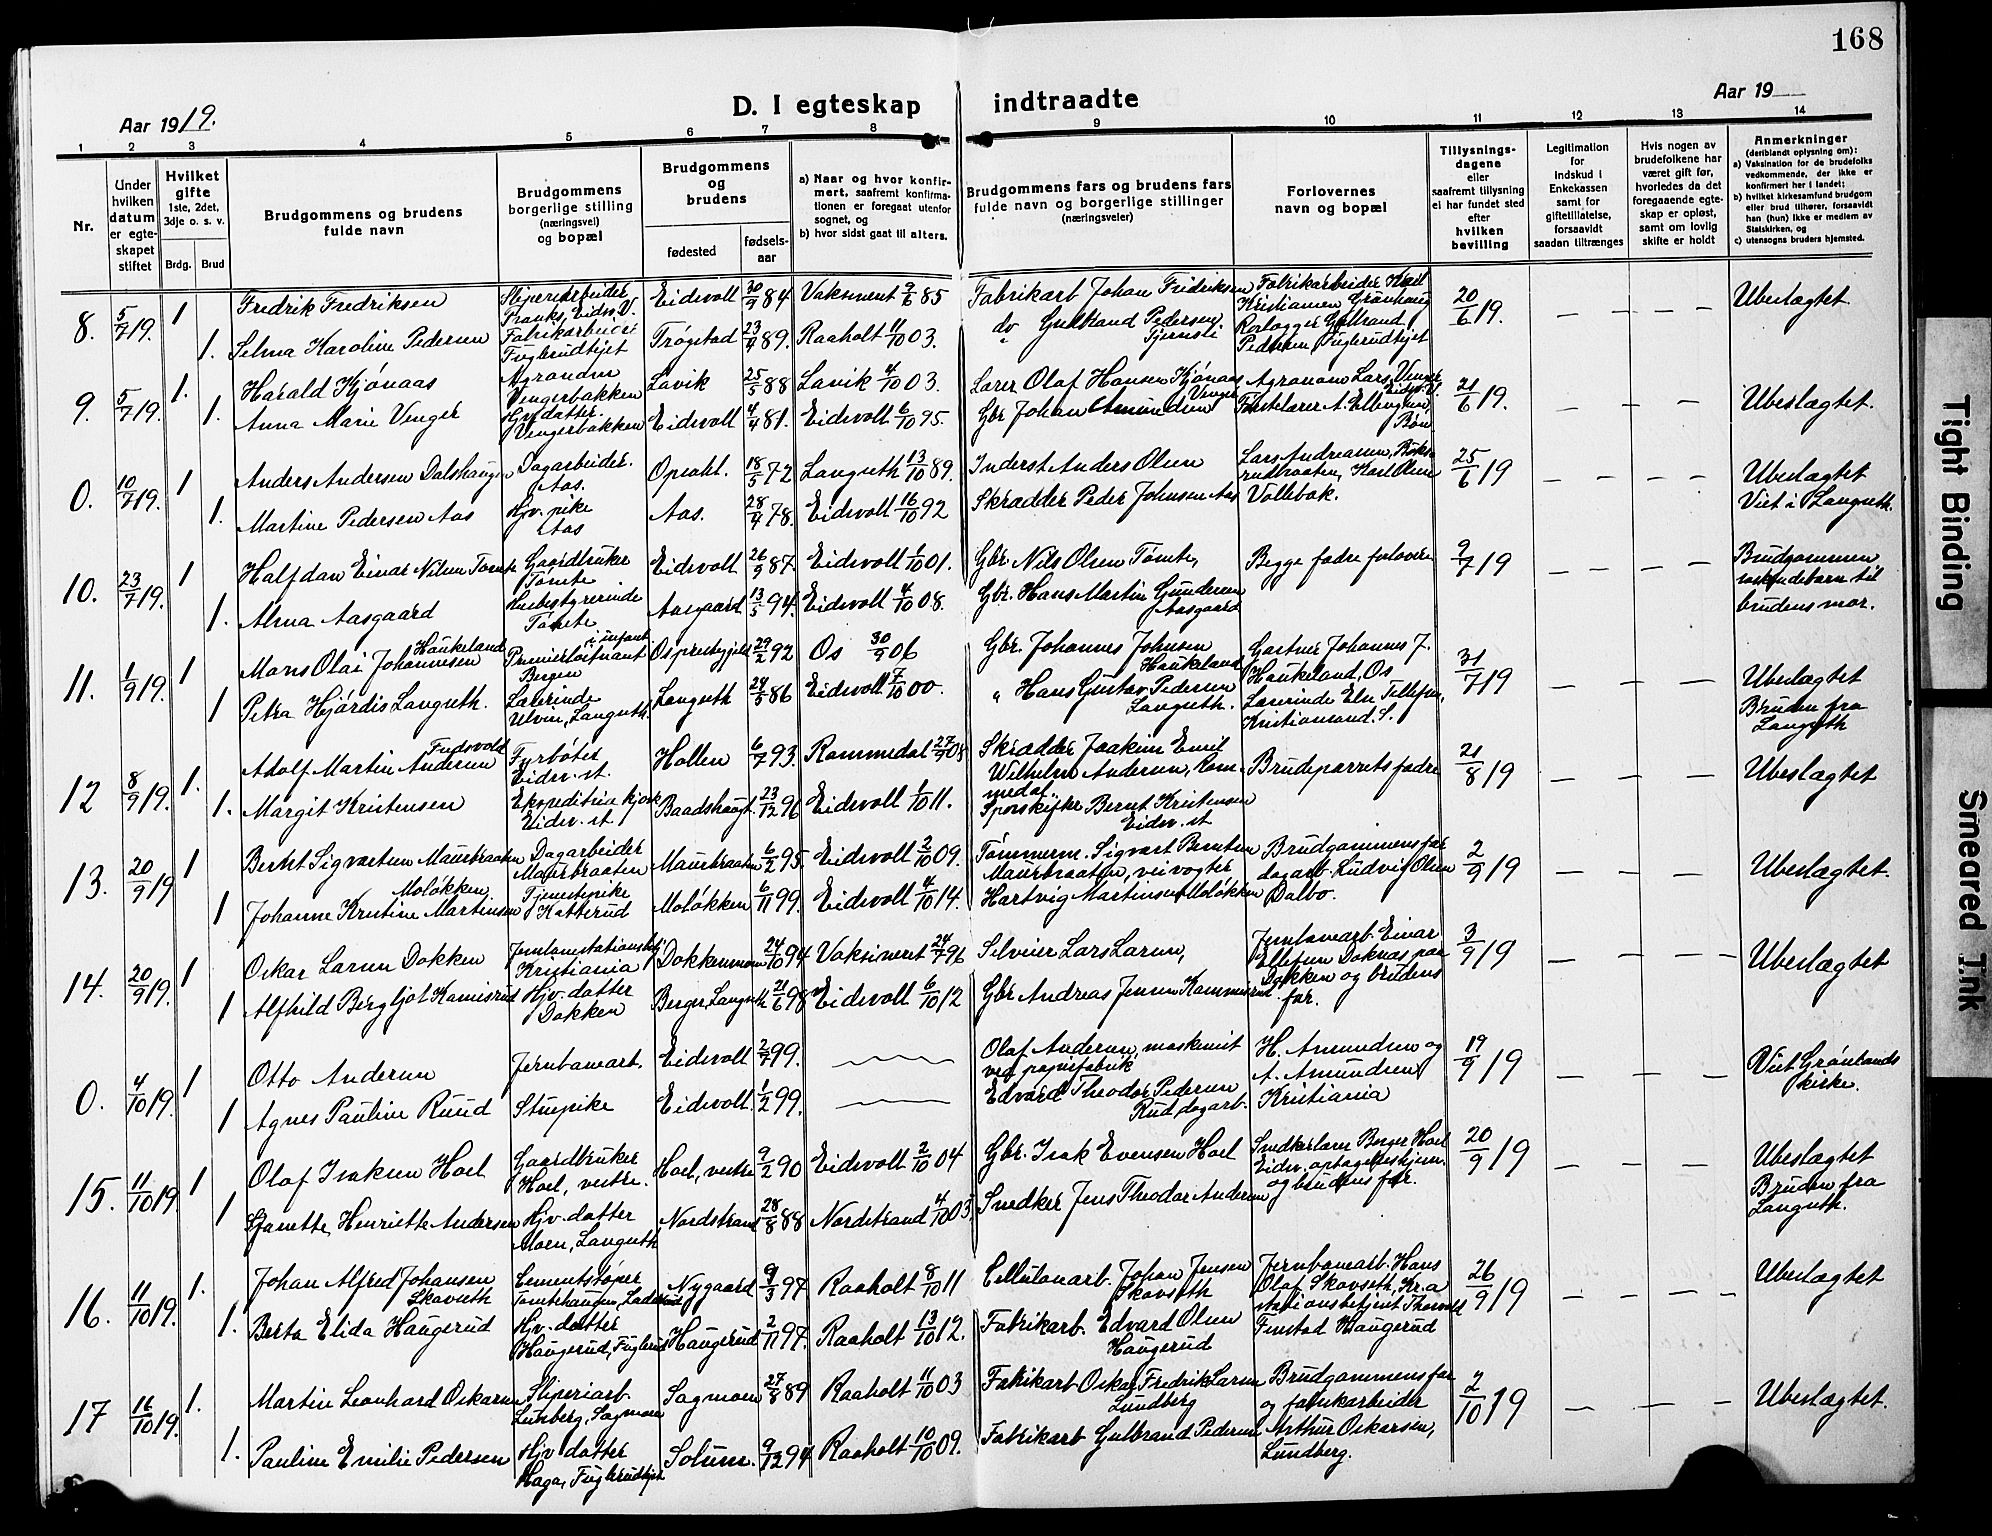 168
D. I egteskap indtraadte
Aar 1919.
Aar 19
1 2 3 4 5 6 7 8 9 10 11 12 13 14
Nr.
Under hvilken datum er egteskapet stiftet
Hvilket gifte 1ste, 2det, 3dje o. s. v.
Brdg. Brud
Brudgommens og brudens fulde navn
Brudgommens borgerlige stilling (næringsvei) og bopæl
Brudgommens og brudens
fødested
fødsels-aar
a) Naar og hvor konfirmert, saafremt konfirmationen er foregaat utenfor sognet, og
b) hvor sidst gaat til alters.
Brudgommens fars og brudens fars fulde navn og borgerlige stillinger (næringsveier)
Forlovernes navn og bopæl
Tillysningsdagene eller saafremt tillysning ei har fundet sted efter hvilken bevilling
Legitimation for Indskud i Enkekassen samt for giftetillatelse, forsaavidt saadan tiltrænges
Hvis nogen av brudefolkene har været gift før, hvorledes da det foregaaende egteskap er opløst, samt om lovlig skifte er holdt
Anmerkninger (deriblandt oplysning om):
a) Vaksination for de brudefolks vedkommende, der ikke er konfirmert her i landet;
b) hvilket kirkesamfund brudgom eller brud tilhører, forsaavidt han (hun) ikke er medlem av Statskirken, og
c) utensogns bruders hjemsted.
8. 5/7 19. 1 Fredrik Fredriksen Sliperiarbeider Eidsvoll 30/9 84 Vaksinert 9/6 85 Fabrikarb Johan Fredriksen Fabrikarbeider Kristiansen Grønhaug 20/6 19. — — Ubeslægtet
1. Selma Karoline Pedersen Fabrikarbeider Fuglerudhjet Trøgstad 23/4 89. Raaholt 11/10 03. do Gulbrand Pedersen, Gulbrand Pedersen, Fuglerudhjet
9. 5/7 19. 1. Harald Kjønaas Agronom Vengerbakken Lavik 25/5 88 Lavik 4/10 03. Lærer Olaf Hansen Kjønaas Agronom Lars Venger Eidsv. V. 21/6 19. — — Ubeslægtet.
1. Anna Marie Venger Hjv. datter. Vengerbakken Eidsvoll 4/4 81. Eidsvoll 6/10 95. Gbr Johan Amundsen Venger
0. 10/7 19. 1 Anders Andersen Dalshaugen Dagarbeider. Aas. Opsahl. 18/5 72 Langseth 13/10 89. Inderst Anders Olsen Lars Andreassen, 25/6 19 — — Ubeslægtet
1. Martine Pedersen Aas Hjv. pike Aas Aas. 28/4 78. Eidsvoll 16/10 92 Skrædder Peder Johnsen Aas Vollebæk. Viet i Langseth.
10. 23/7 19. 1 Halfdan Einar Nilsen Tømte Gaardbruker Tømte Eidsvoll 26/9 87 Eidsvoll 1/10 01. Gbr. Nils Olsen Tømte, Begge fædre forlovere 9/7 19 — — Brudgommen søskendebarn til brudens mor.
1. Alma Aasgaard Husbestyrerinde Tømte Aasgaard 13/5 94. Eidsvoll 4/10 08. Gbr. Hans Martin Gundersen Aasgaard
11. 1/9 19. 1 Mons Olai Johannesen Haukeland Premierløitnant i infant. Bergen Os prestegjeld 29/2 92 Os 30/9 06 Gbr. Johannes Johnsen Haukeland Gartner Johannes J. Haukeland, Os 31/7 19 — — Ubeslægtet
1 Petra Hjørdis Langseth. Lærerinde Ulvin, Langseth. Langseth 24/5 86 Eidsvoll 7/10 00. " Hans Gustav Pedersen Langseth. Lærerinde Elen Tellefsen, Kristiansand. S. Bruden fra Langseth
12 8/9 19. 1. Adolf Martin Andersen Fudsvold Fyrbøter Eidsv. st. Hollen 6/7 93. Rommedal 27/9 08 Skrædder Joakim Emil Wilhelm Andersen, Rommedal. Brudeparrets fædre 21/8 19 — — Ubeslægtet
1. Margit Kristensen Ekspeditrise kjosk Eidsv. st Baadshaugt. 23/12 96 Eidsvoll 1/10 11. Sporskifter Bernt Kristensen Eidsv. st
13. 20/9 19 1 Bernt Sigvartsen Maurbraaten Dagarbeider Maurbraaten Maurbraaten 6/2 95. Eidsvoll 2/10 09. Tømmerm. Sigvart Berntsen Maurbraaten, veivogter Brudgommens far dagarb. Ludvig Olsen Dalbo. 2/9 19 — — Ubeslægtet.
1 Johanne Kristine Martinsen Moløkken Tjenestepike Katterud Moløkken 6/11 99. Eidsvoll 4/10 14. Hartvig Martinsen Moløkken
14. 20/9 19. 1 Oskar Larsen Dokken Kristiania Dokkenmoen 24/10 94 Vaksineret 24/7 96 Selveier Lars Larsen, Jernbanearb. Einar Ellefsen Doknæs, paa Dokken og brudens far. 3/9 19 — — Ubeslægtet
1 Alfhild Bergljot Kamisrud Hjv. datter Dokken Berger, Langseth 21/6 98 Eidsvoll 6/10 12 Gbr. Andreas Jensen Kammisrud
0. 4/10 19. 1 Otto Andersen Jernbanearb. Eidsvoll 2/7 99. Olaf Andersen, maskinist ved papirfabrik H. Amundsen og A. Amundsen Kristiania 19/9 19 — — Viet Grønlands kirke.
1 Agnes Pauline Ruud Stuepike Eidsvoll. 1/2 99. Edvard Theodor Pedersen Rud, dagarb.
15. 11/10 19. 1 Olaf Isaksen Hoel Gaardbruker Hoel, vestre. Hoel, vestre 9/2 90 Eidsvoll 2/10 04 Gbr. Isak Evensen Hoel Snedkerlærer Berger Hoel Eidsv. optagelseshjem. og brudens far. 20/9 19 — — Ubeslægtet
1 Sjanette Henriette Andersen Hjv. datter Moen, Langseth Nordstrand 28/8 88 Nordstrand 4/10 03. Snedker Jens Theodor Andersen Bruden fra Langseth.
16. 11/10 19. 1. Johan Alfred Johansen Skovseth Cementstøper Nygaard 9/3 97 Raaholt 8/10 11 Cellulosearb. Johan Jensen Skovseth Jernbanearb. Hans Olaf Skovseth, Kr.a stationsbetjent Thorvald Finstad Haugerud 26/9 19 — — Ubeslægtet
1. Berta Elida Haugerud Hjv. datter Haugerud, Haugerud 2/11 97. Raaholt 13/10 12. Fabrikarb. Edvard Olsen Haugerud
17 16/10 19. 1. Martin Leonhard Oskarsen Sliperiarb. Lunberg, Sagmoen Sagmoen 27/8 89 Raaholt 11/10 03 Fabrikarb. Oskar Fredrik Larsen Lundberg Brudgommens far og fabrikarbeider Arthur Oskarsen, Lundberg. 2/10 19 — — Ubeslægtet.
1. Pauline Emilie Pedersen Hjv. datter Haga, Fuglerudhjet Solum. 9/12 94 Raaholt 10/10 09. Fabrikarb Gulbrand Pedersen
Tight Binding
Smeared Ink